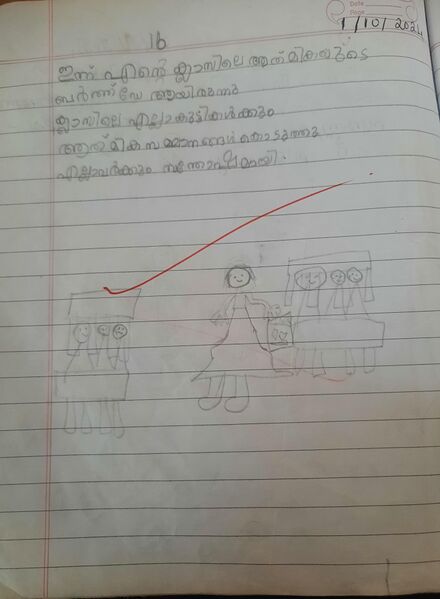 Date
Page
1/10/2024
16
ഇന്ന് എന്റെ ക്ലാസിലെ ആത്മികയുടെ
ബർത്ത്ഡേ ആയിരുന്നു
ക്ലാസിലെ എല്ലാകുട്ടികൾക്കും
ആത്മിക സമ്മാനങ്ങൾ കൊടുത്തു
എല്ലാവർക്കും സന്തോഷമായി.